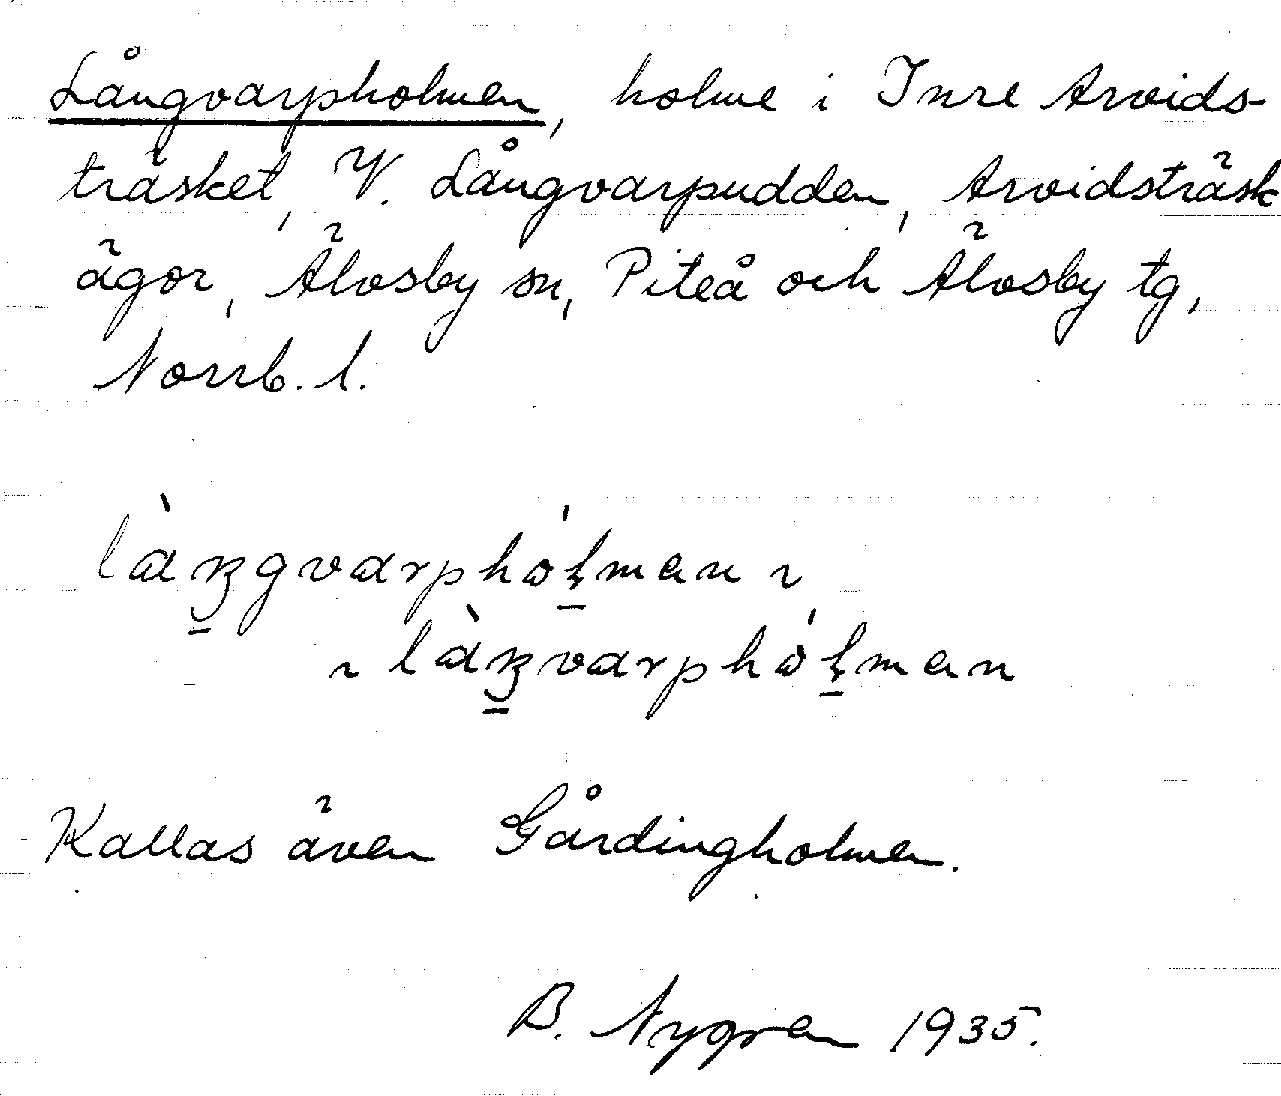 Långvarpholmen, holme i Inre Arvids-
träsket, V. Långvarpudden, Arvidsträsk
ägor, Älvsby sn, Piteå och Älvsby tg,
Norrb. l.
Kallas även Gårdingholmen.
B. Nygren 1935.